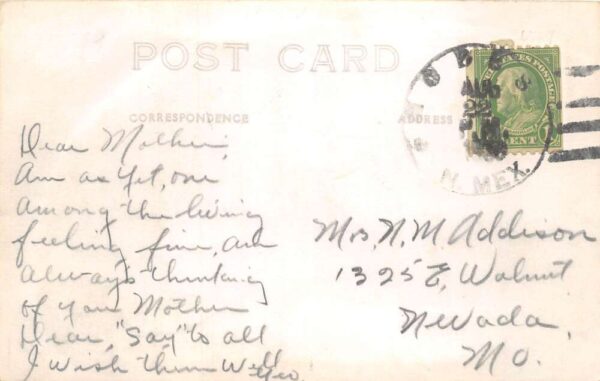 POST CARD
CORRESPONDENCE
ADDRESS
HOBBS
AUG
22
N. MEX.
STATES POSTAGE
CENT
Dear Mother,
Am as yet, one
among the living
feeling fine, am
always thinking
of you Mother
Dear, "Say" to all
I wish them Well
Geo.
Mrs. N. M Addison
1325 E, Walnut
Nevada,
Mo.